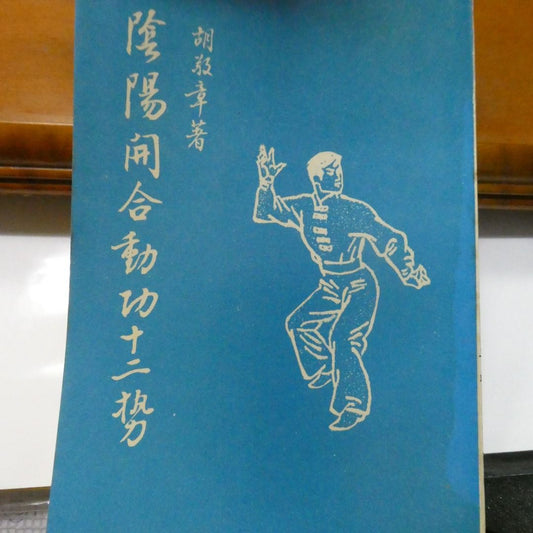 陰陽開合動功十二势
胡敬章著